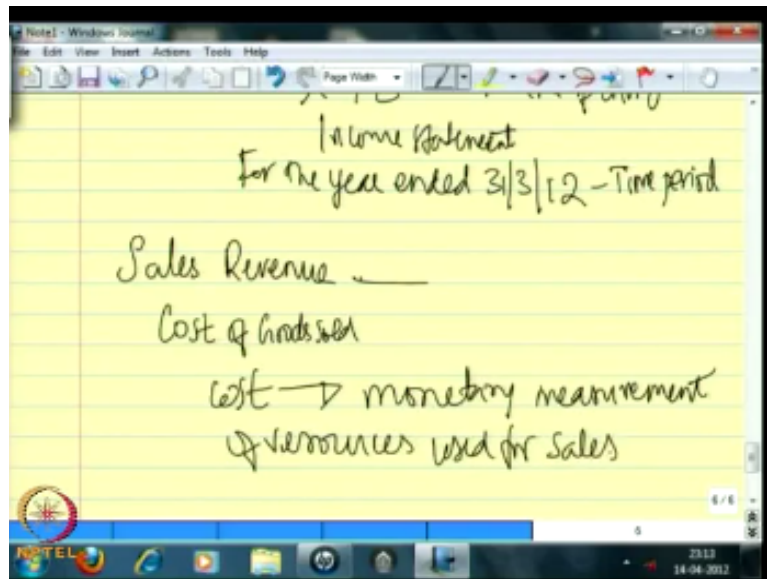 Note1 - Windows Journal
File Edit View Insert Actions Tools Help
Page Width
Income statement
For the year ended 31/3/12 - Time period
Sales Revenue
Cost of Goods sold
Cost → monetary measurement
of resources used for sales
6/6
6
NPTEL
23:13
14-04-2012